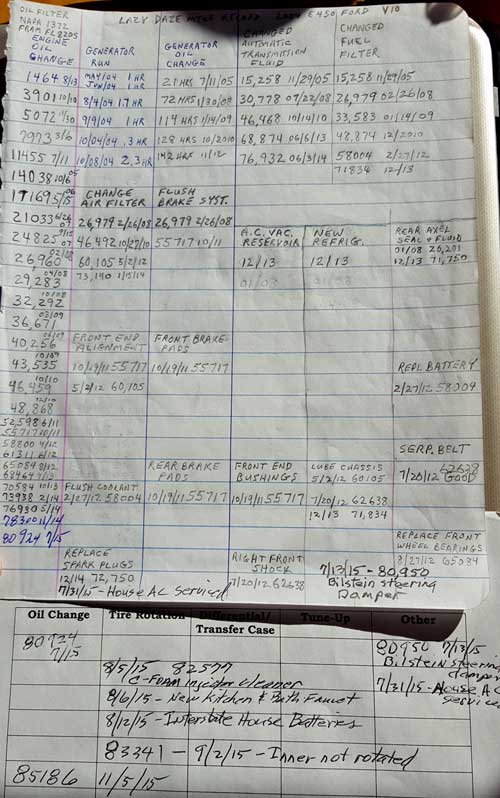 OIL FILTER
NAPA 1372
FRAM FL820S
LAZY DAZE MOTO RECORD 2004 E450 FORD V10
ENGINE OIL CHANGE
GENERATOR RUN
GENERATOR OIL CHANGE
CHANGED AUTOMATIC TRANSMISSION FLUID
CHANGED FUEL FILTER
1464 8/13 MAY/04 1 HR 21 HRS 7/11/05 15,258 11/29/05 15,258 11/29/05
JUN/04 1 HR
3901 10/10 8/4/04 1.7 HR 72 HRS 1/30/08 30,778 07/22/08 26,979 02/26/08
5072 11/30 9/9/04 1 HR 114 HRS 1/14/09 46,468 10/14/10 33,583 01/14/09
7973 3/6 10/04/04 .3 HR 128 HRS 10/2010 68,874 06/6/13 48,874 12/2010
11455 7/11 10/08/04 2.3 HR 142 HRS 11/12 76,932 06/3/14 58004 2/27/12
14038 10/6 05 71834 12/13
17169 5/15 06 CHANGE AIR FILTER FLUSH BRAKE SYST.
21033 6/26 07 26,979 2/26/08 26,979 2/26/08
24825 9/15 07 46,492 10/27/10 55717 10/11 A.C. VAC. RESERVOIR NEW REFRIG. REAR AXEL SEAL & FLUID
01/08 26,201
26,960 02/08 60,105 5/2/12 12/13 12/13 12/13 71,750
29,283 04/08 73,190 1/5/14 01/03 01/08
32,292 10/08
36,671 03/09
40,256 06/09 FRONT END ALIGNMENT FRONT BRAKE PADS
43,535 10/09 10/19/11 55717 10/19/11 55717 REPL BATTERY
46,459 10/10 5/2/12 60,105 2/27/12 58004
48,868 12/10
52,598 6/11
55717 10/11
58800 4/12 SERP. BELT
61311 6/12 7/20/12 62638 GOOD
65084 8/12 REAR BRAKE PADS FRONT END BUSHINGS LUBE CHASSIS
68464 4/13 5/2/12 60105
70584 10/13 FLUSH COOLANT
73938 2/14 2/27/12 58004 10/19/11 55717 10/19/11 55717 7/20/12 62638
76930 5/14 12/13 71,834
78300 11/14 REPLACE FRONT WHEEL BEARINGS
80924 7/15 8/27/12 65084
REPLACE SPARK PLUGS RIGHT FRONT SHOCK 7/13/15 - 80,950
12/14 72,750 7/20/12 62638 Bilstein steering
7/31/15 - House AC Serviced Damper
Oil Change Tire Rotation Differential/ Transfer Case Tune-Up Other
80924 7/15 80950 7/13/15
Bilstein steering damper
8/5/15 82577
C-FOAM Injector Cleaner 7/31/15 - House AC serviced
8/6/15 - New Kitchen & Bath Faucet
8/12/15 - Interstate House Batteries
83341 - 9/2/15 - Inner not rotated
85186 11/5/15